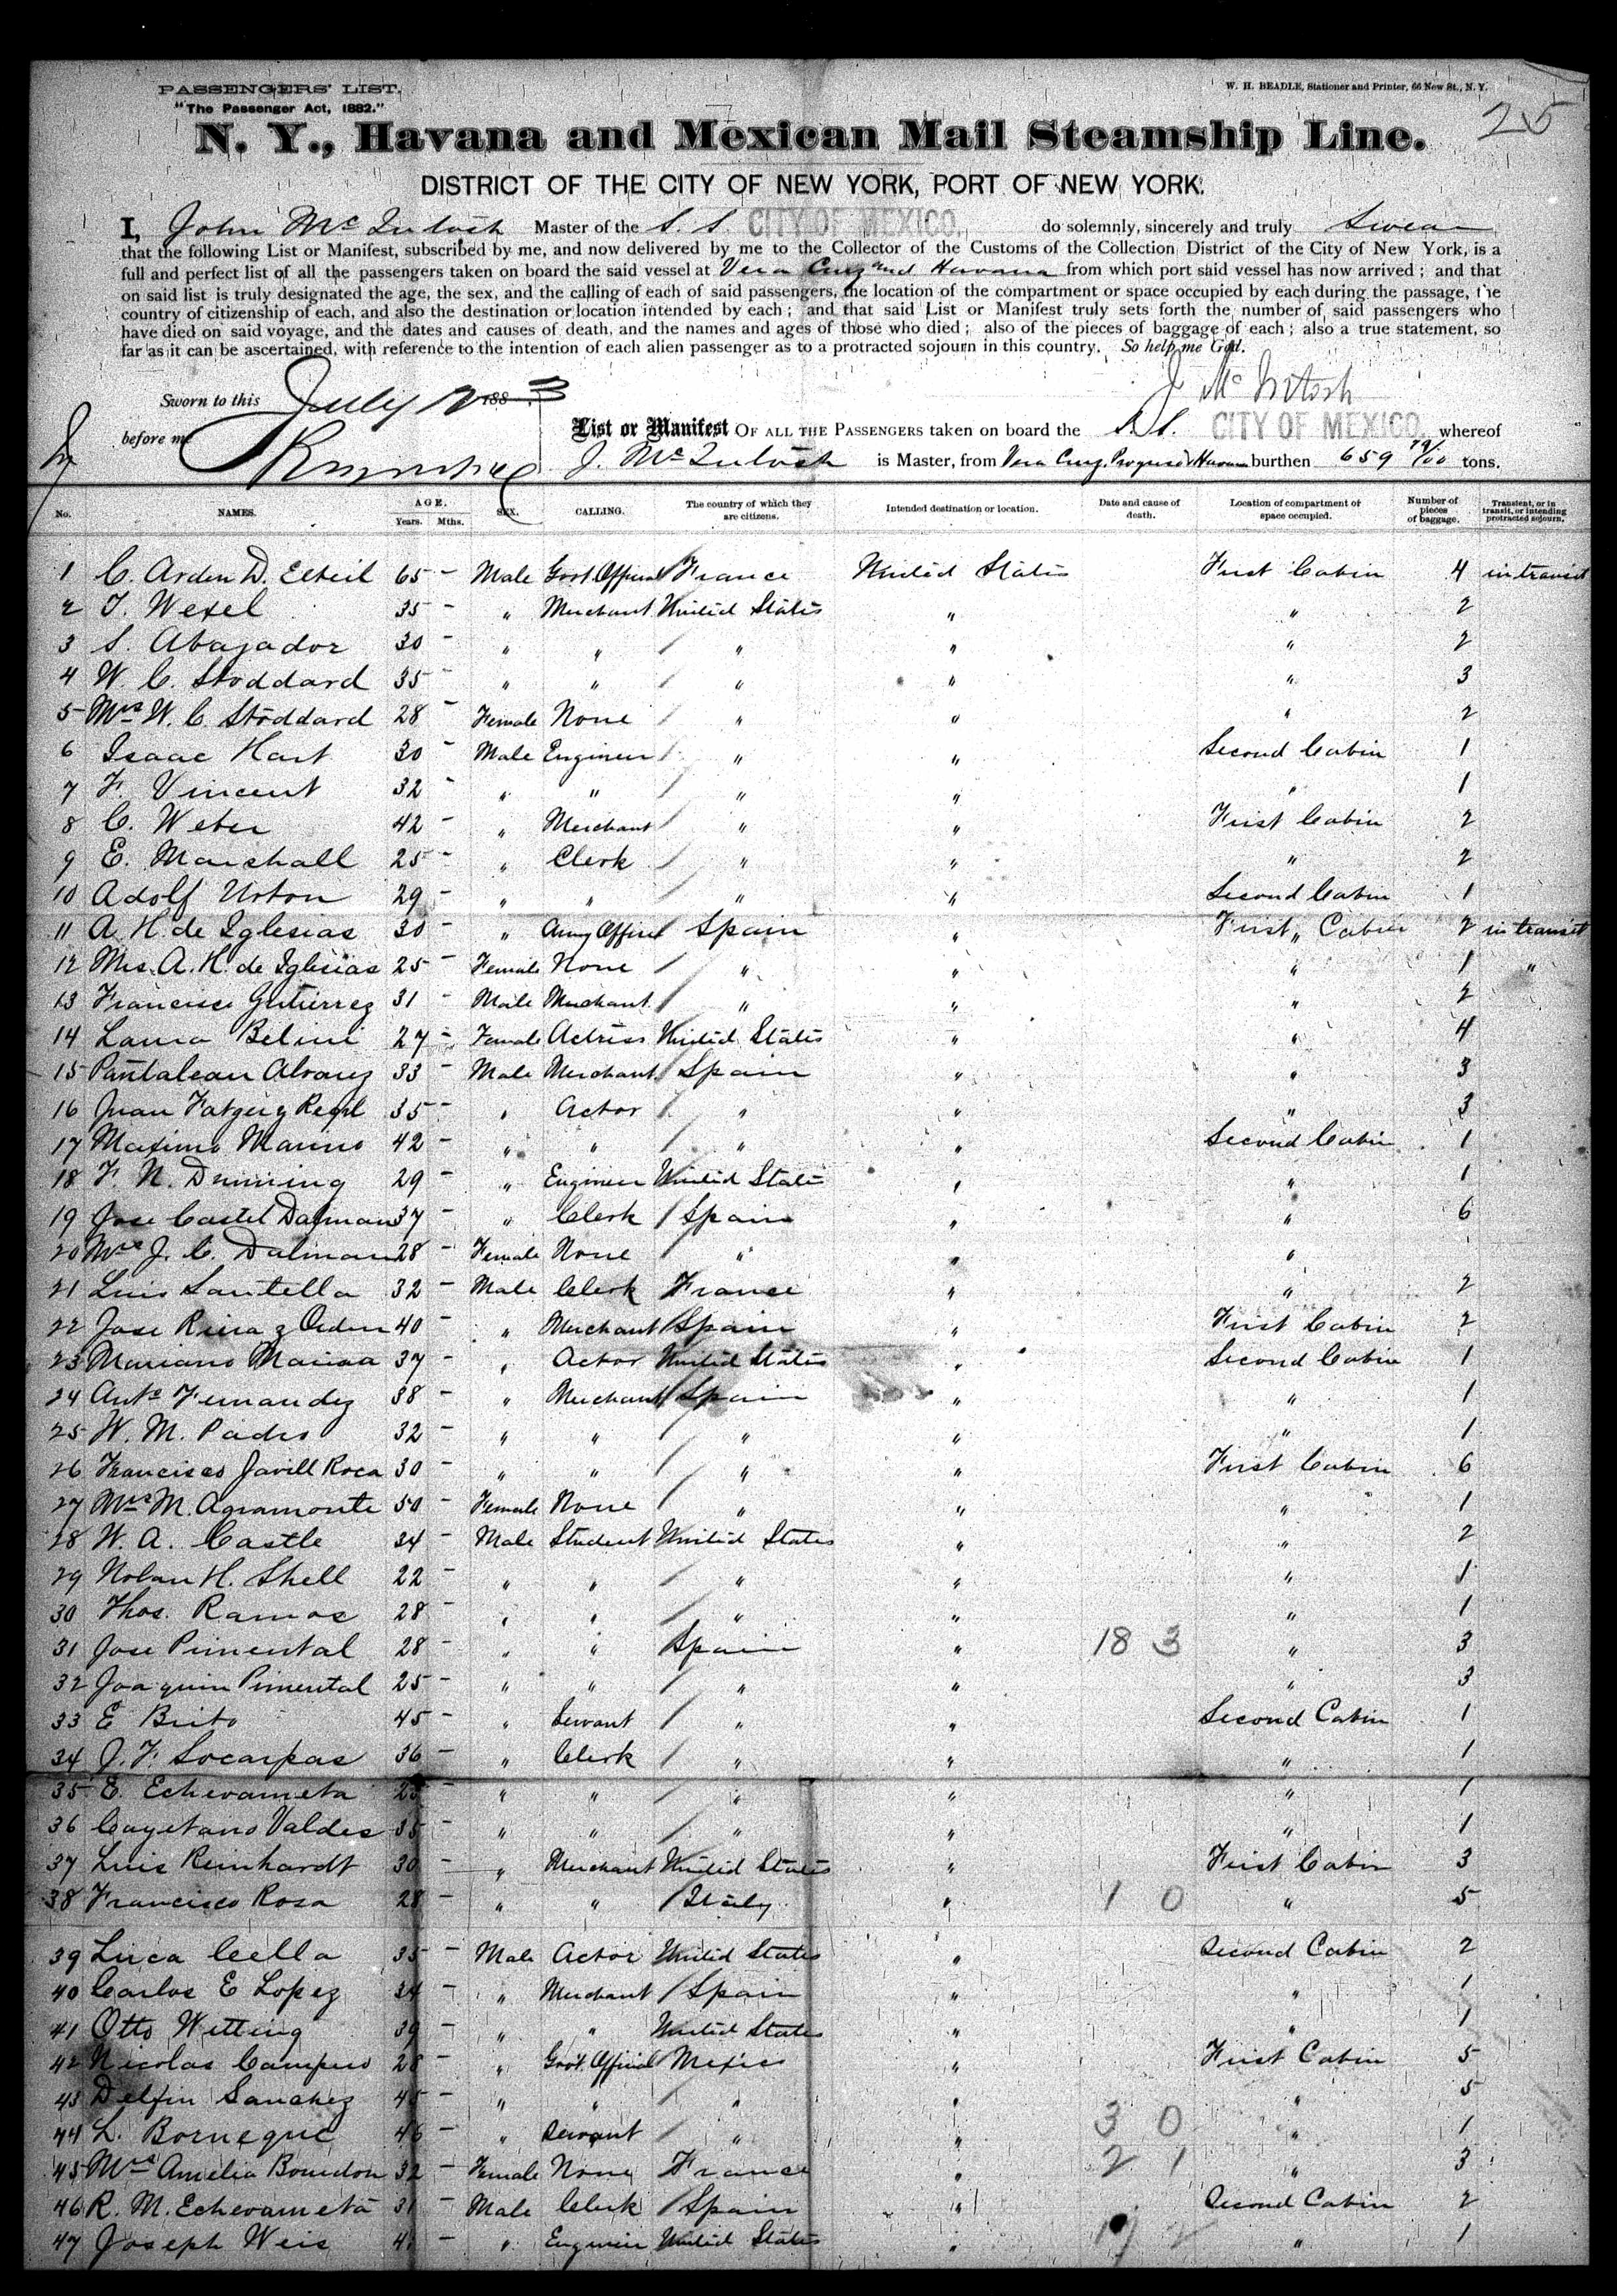 PASSENGERS' LIST.
"The Passenger Act, 1882."
W. H. BEADLE, Stationer and Printer, 66 New St., N. Y.
25
N. Y., Havana and Mexican Mail Steamship Line.
DISTRICT OF THE CITY OF NEW YORK, PORT OF NEW YORK.
I, John McIntosh Master of the S. S. CITY OF MEXICO, do solemnly, sincerely and truly Swear
that the following List or Manifest, subscribed by me, and now delivered by me to the Collector of the Customs of the Collection District of the City of New York, is a
full and perfect list of all the passengers taken on board the said vessel at Vera Cruz and Havana from which port said vessel has now arrived; and that
on said list is truly designated the age, the sex, and the calling of each of said passengers, the location of the compartment or space occupied by each during the passage, the
country of citizenship of each, and also the destination or location intended by each; and that said List or Manifest truly sets forth the number of said passengers who
have died on said voyage, and the dates and causes of death, and the names and ages of those who died; also of the pieces of baggage of each; also a true statement, so
far as it can be ascertained, with reference to the intention of each alien passenger as to a protracted sojourn in this country. So help me God.
J McIntosh
Sworn to this July 2 1883
before me
List or Manifest OF ALL THE PASSENGERS taken on board the S.S. CITY OF MEXICO, whereof
J. McIntosh is Master, from Vera Cruz, Progreso & Havana burthen 659 79/100 tons.
No. NAMES. AGE. Years. Mths. SEX. CALLING. The country of which they are citizens. Intended destination or location. Date and cause of death. Location of compartment of space occupied. Number of pieces of baggage. Transient, or in transit, or intending protracted sojourn.
1 C. Arden D. 65 - Male Govt. Official France United States First Cabin 4 in transit
2 T. Wexel 35 - " Merchant United States " " 2
3 S. Abajador 30 - " " " " " 2
4 W. C. Stoddard 35 - " " " " " 3
5 Mrs W. C. Stoddard 28 - Female None " " " 2
6 Isaac Hart 30 - Male Engineer " " Second Cabin 1
7 F. Vincent 32 - " " " " " 1
8 C. Weber 42 - " Merchant " " First Cabin 2
9 E. Marshall 25 - " Clerk " " " 2
10 Adolf Urton 29 - " " " " Second Cabin 1
11 A. H. de Iglesias 30 - " Army Officer Spain " First Cabin 2 in transit
12 Mrs. A. H. de Iglesias 25 - Female None " " " 1 "
13 Francisco Gutierrez 31 - Male Merchant " " " 2
14 Laura Belini 27 - Female Actress United States " " 4
15 Pantalean Alvarez 33 - Male Merchant Spain " " 3
16 Juan 35 - " Actor " " " 3
17 Maximo 42 - " " " " Second Cabin 1
18 F. N. 29 - " Engineer United States " " 1
19 Jose Castel Dalman 37 - " Clerk Spain " " 6
20 Mrs J. C. Dalman 28 - Female None " " "
21 Luis Santella 32 - Male Clerk France " " 2
22 Jose 40 - " Merchant Spain " First Cabin 2
23 Mariano 37 - " Actor United States " Second Cabin 1
24 Anto Fernandez 38 - " Merchant Spain " " 1
25 W. M. Padro 32 - " " " " " 1
26 Francisco Javill Roca 30 - " " " " First Cabin 6
27 Mrs M. Agramonte 50 - Female None " " " 1
28 W. A. Castle 34 - Male Student United States " " 2
29 Nolan H. Shell 22 - " " " " " 1
30 Thos. Ramos 28 - " " " " " 1
31 Jose Pimental 28 - " " Spain " 18 3 " 3
32 Joaquin Pimental 25 - " " " " " 3
33 E Brito 45 - " Servant " " Second Cabin 1
34 J. F. Socarpas 36 - " Clerk " " " 1
35 E. Echevarrieta 25 - " " " " " 1
36 Cayetano Valdes 35 - " " " " " 1
37 Luis Reinhardt 30 - " Merchant United States " First Cabin 3
38 Francisco Rosa 28 - " " Italy " 1 0 " 5
39 Luca Cella 35 - Male Actor United States " Second Cabin 2
40 Carlos E Lopez 34 - " Merchant Spain " " 1
41 Otto Witting 39 - " " United States " " 1
42 Nicolas 28 - " Govt. Official Mexico " First Cabin 5
43 Delfin Sanchez 45 - " " " " " 5
44 L. Borneque 46 - " Servant " " 3 0 " 1
45 Mrs Amelia Bourdon 32 - Female None France " 2 1 " 3
46 R. M. Echevarrieta 31 - Male Clerk Spain " Second Cabin 2
47 Joseph Weis - " Engineer United States " " 1